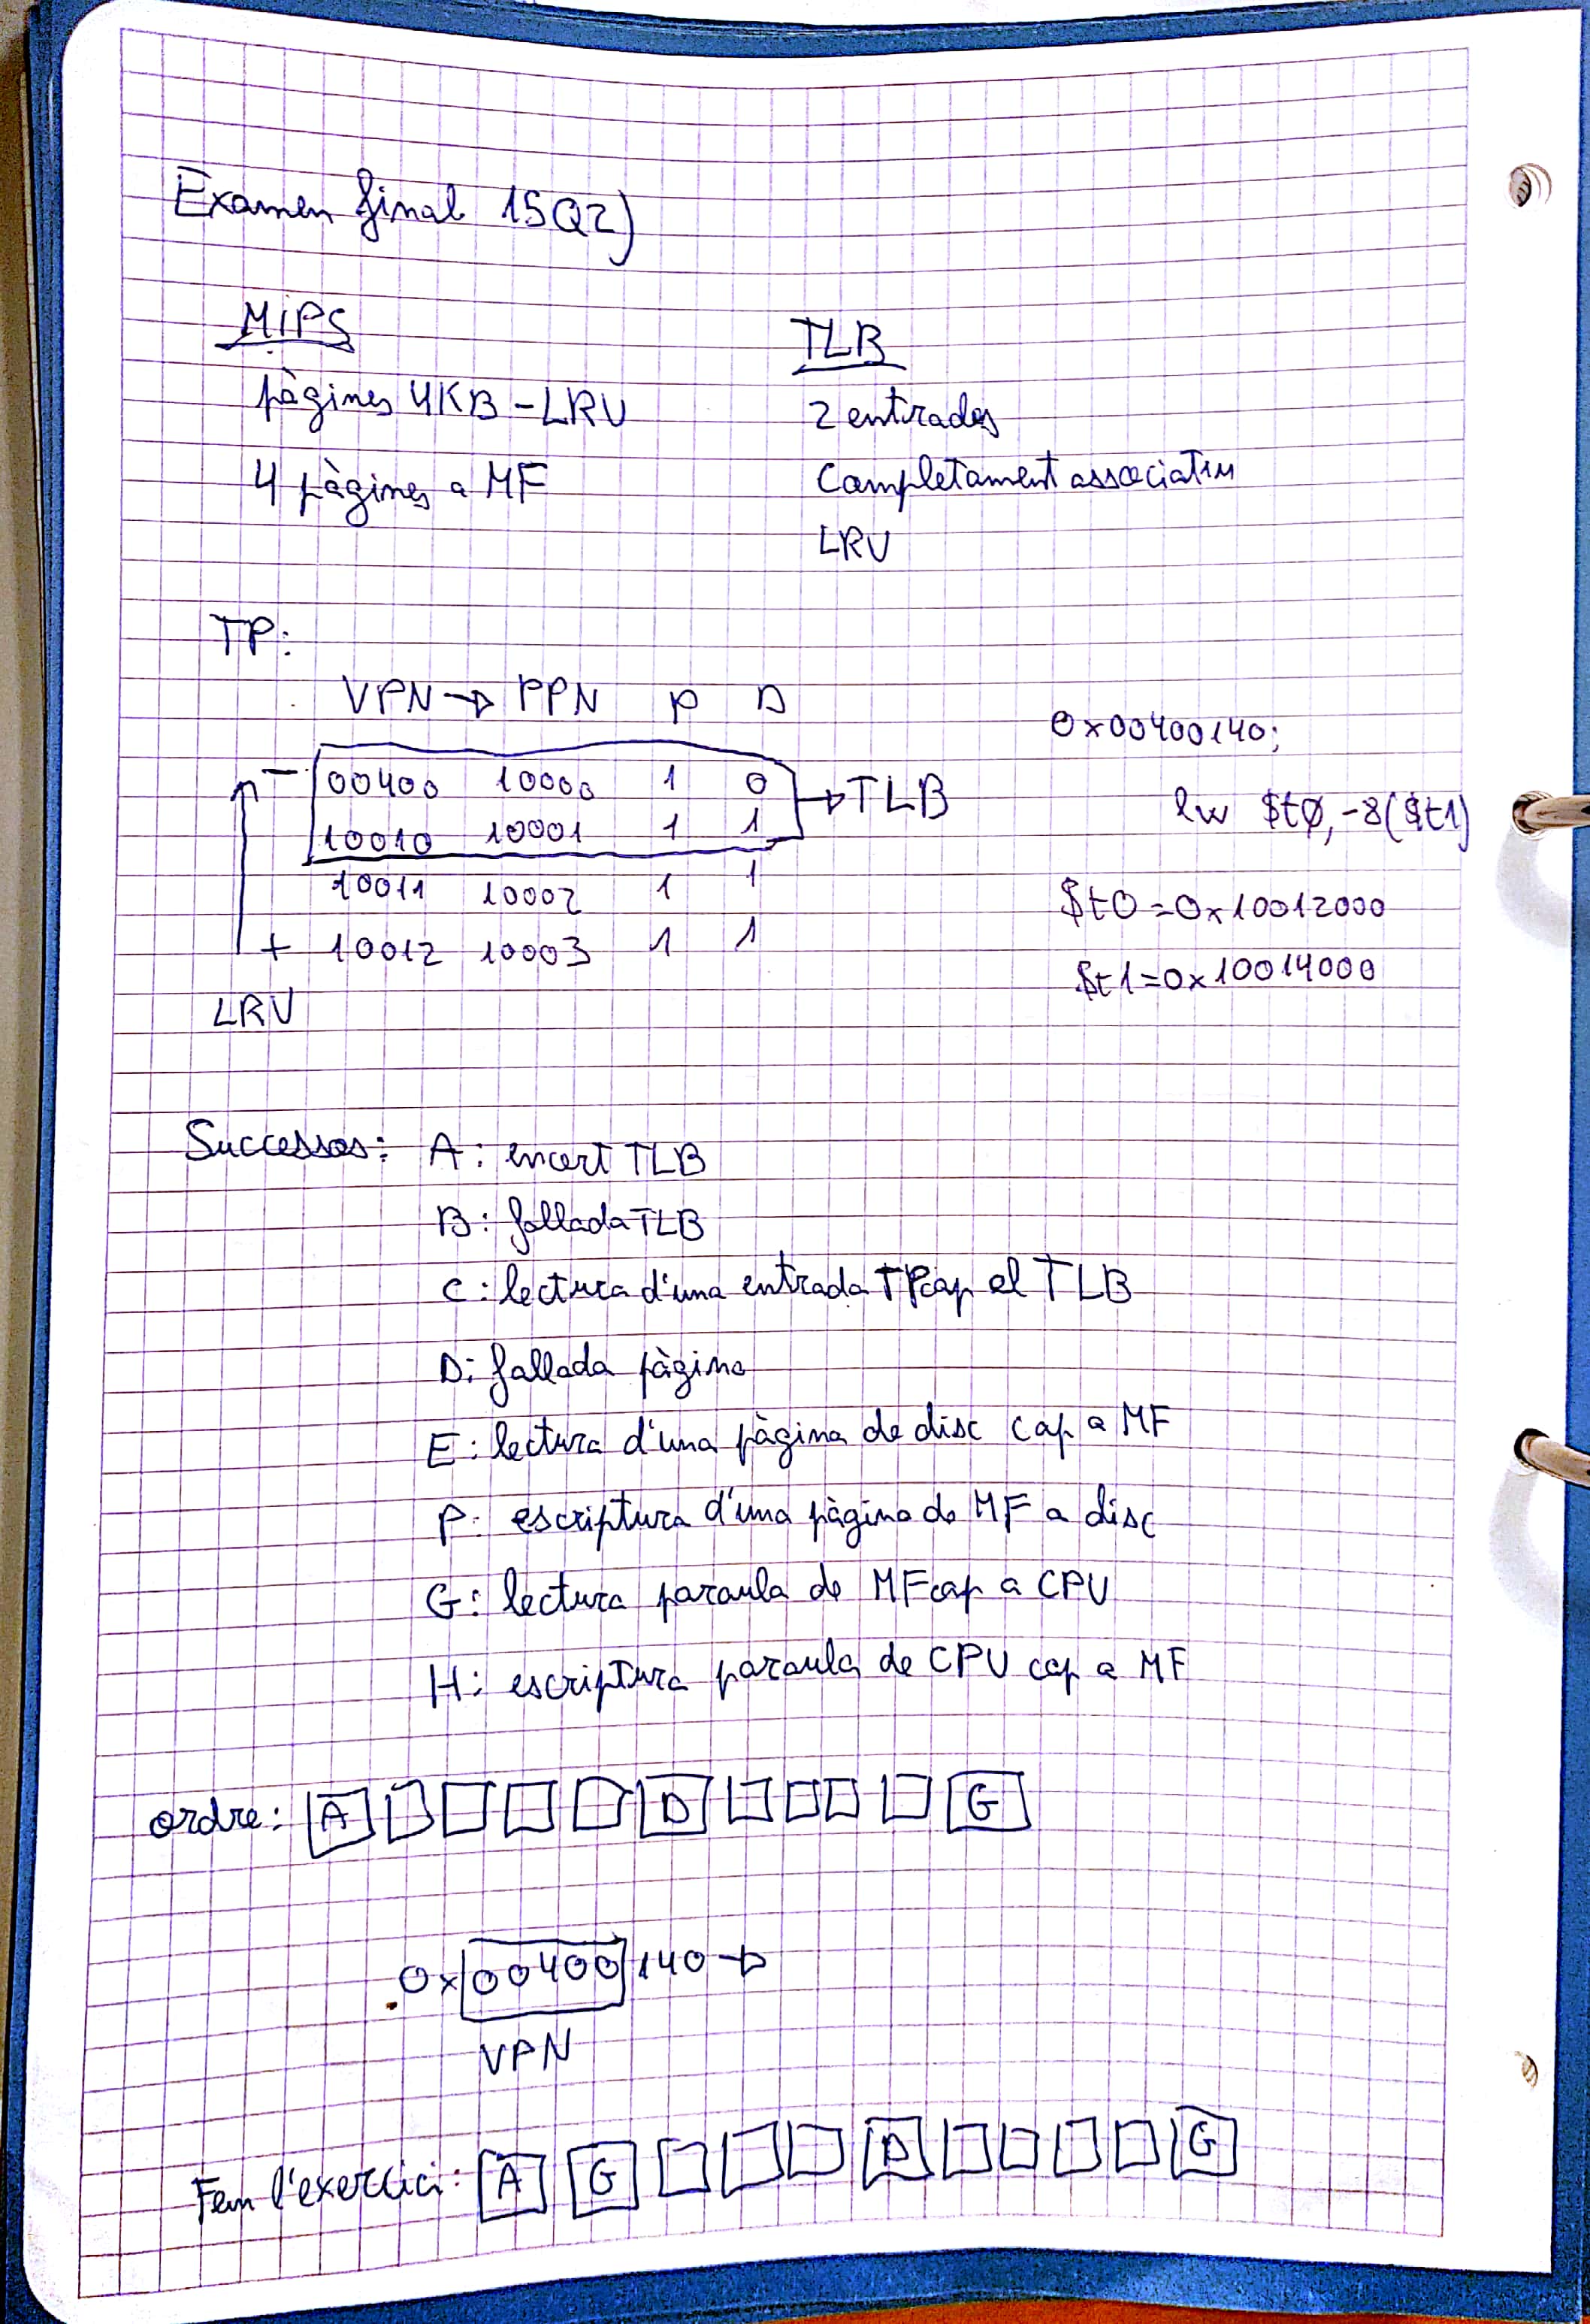 Examen final 15Q2)
MIPS
pàgines 4KB - LRU
4 pàgines a MF
TLB
2 entrades
Completament associatiu
LRU
TP:
VPN → PPN P D
- 00400 10000 1 0 → TLB
10010 10001 1 1
10011 10002 1 1
+ 10012 10003 1 1
LRU
0x00400140;
lw $t0, -8($t1)
$t0 = 0x10012000
$t1 = 0x10014000
Successos: A: encert TLB
B: fallada TLB
C: lectura d'una entrada TP cap el TLB
D: fallada pàgina
E: lectura d'una pàgina de disc cap a MF
F: escriptura d'una pàgina de MF a disc
G: lectura paraula de MF cap a CPU
H: escriptura paraula de CPU cap a MF
ordre: A D G
0x00400140 →
VPN
Fem l'exercici: A G D G